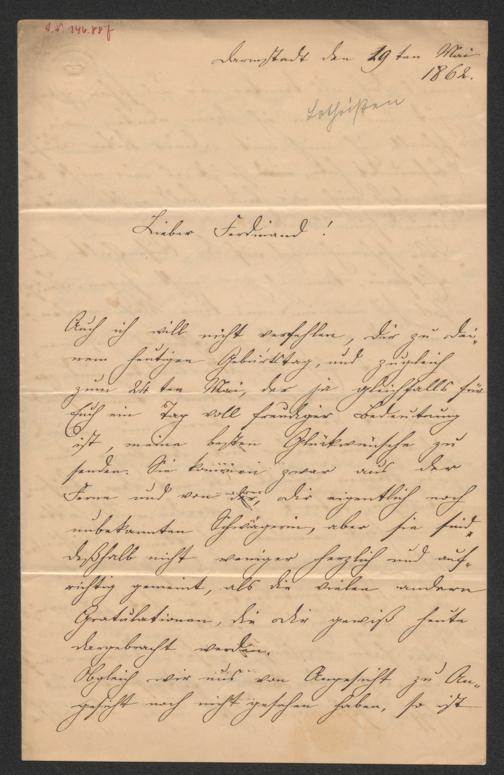 I.N. 146.887
Darmstadt den 19 ten Mai
1862.
Lieber Ferdinand!
Auch ich will nicht verfehlen, Dir zu Dei-
nem heutigen Geburtstag, und zugleich
zum 24 ten Mai, der ja gleichfalls für
Euch ein Tag voll freudiger Bedeutung
ist, meine besten Glückwünsche zu
senden. Sie kommen zwar aus der
Ferne und von der Dir eigentlich noch
unbekannten Schwägerin, aber sie sind
deßhalb nicht weniger herzlich und auf-
richtig gemeint, als die vielen andern
Gratulationen, die Dir gewiß heute
dargebracht werden.
Obgleich wir uns von Angesicht zu An-
gesicht noch nicht gesehen haben, so ist